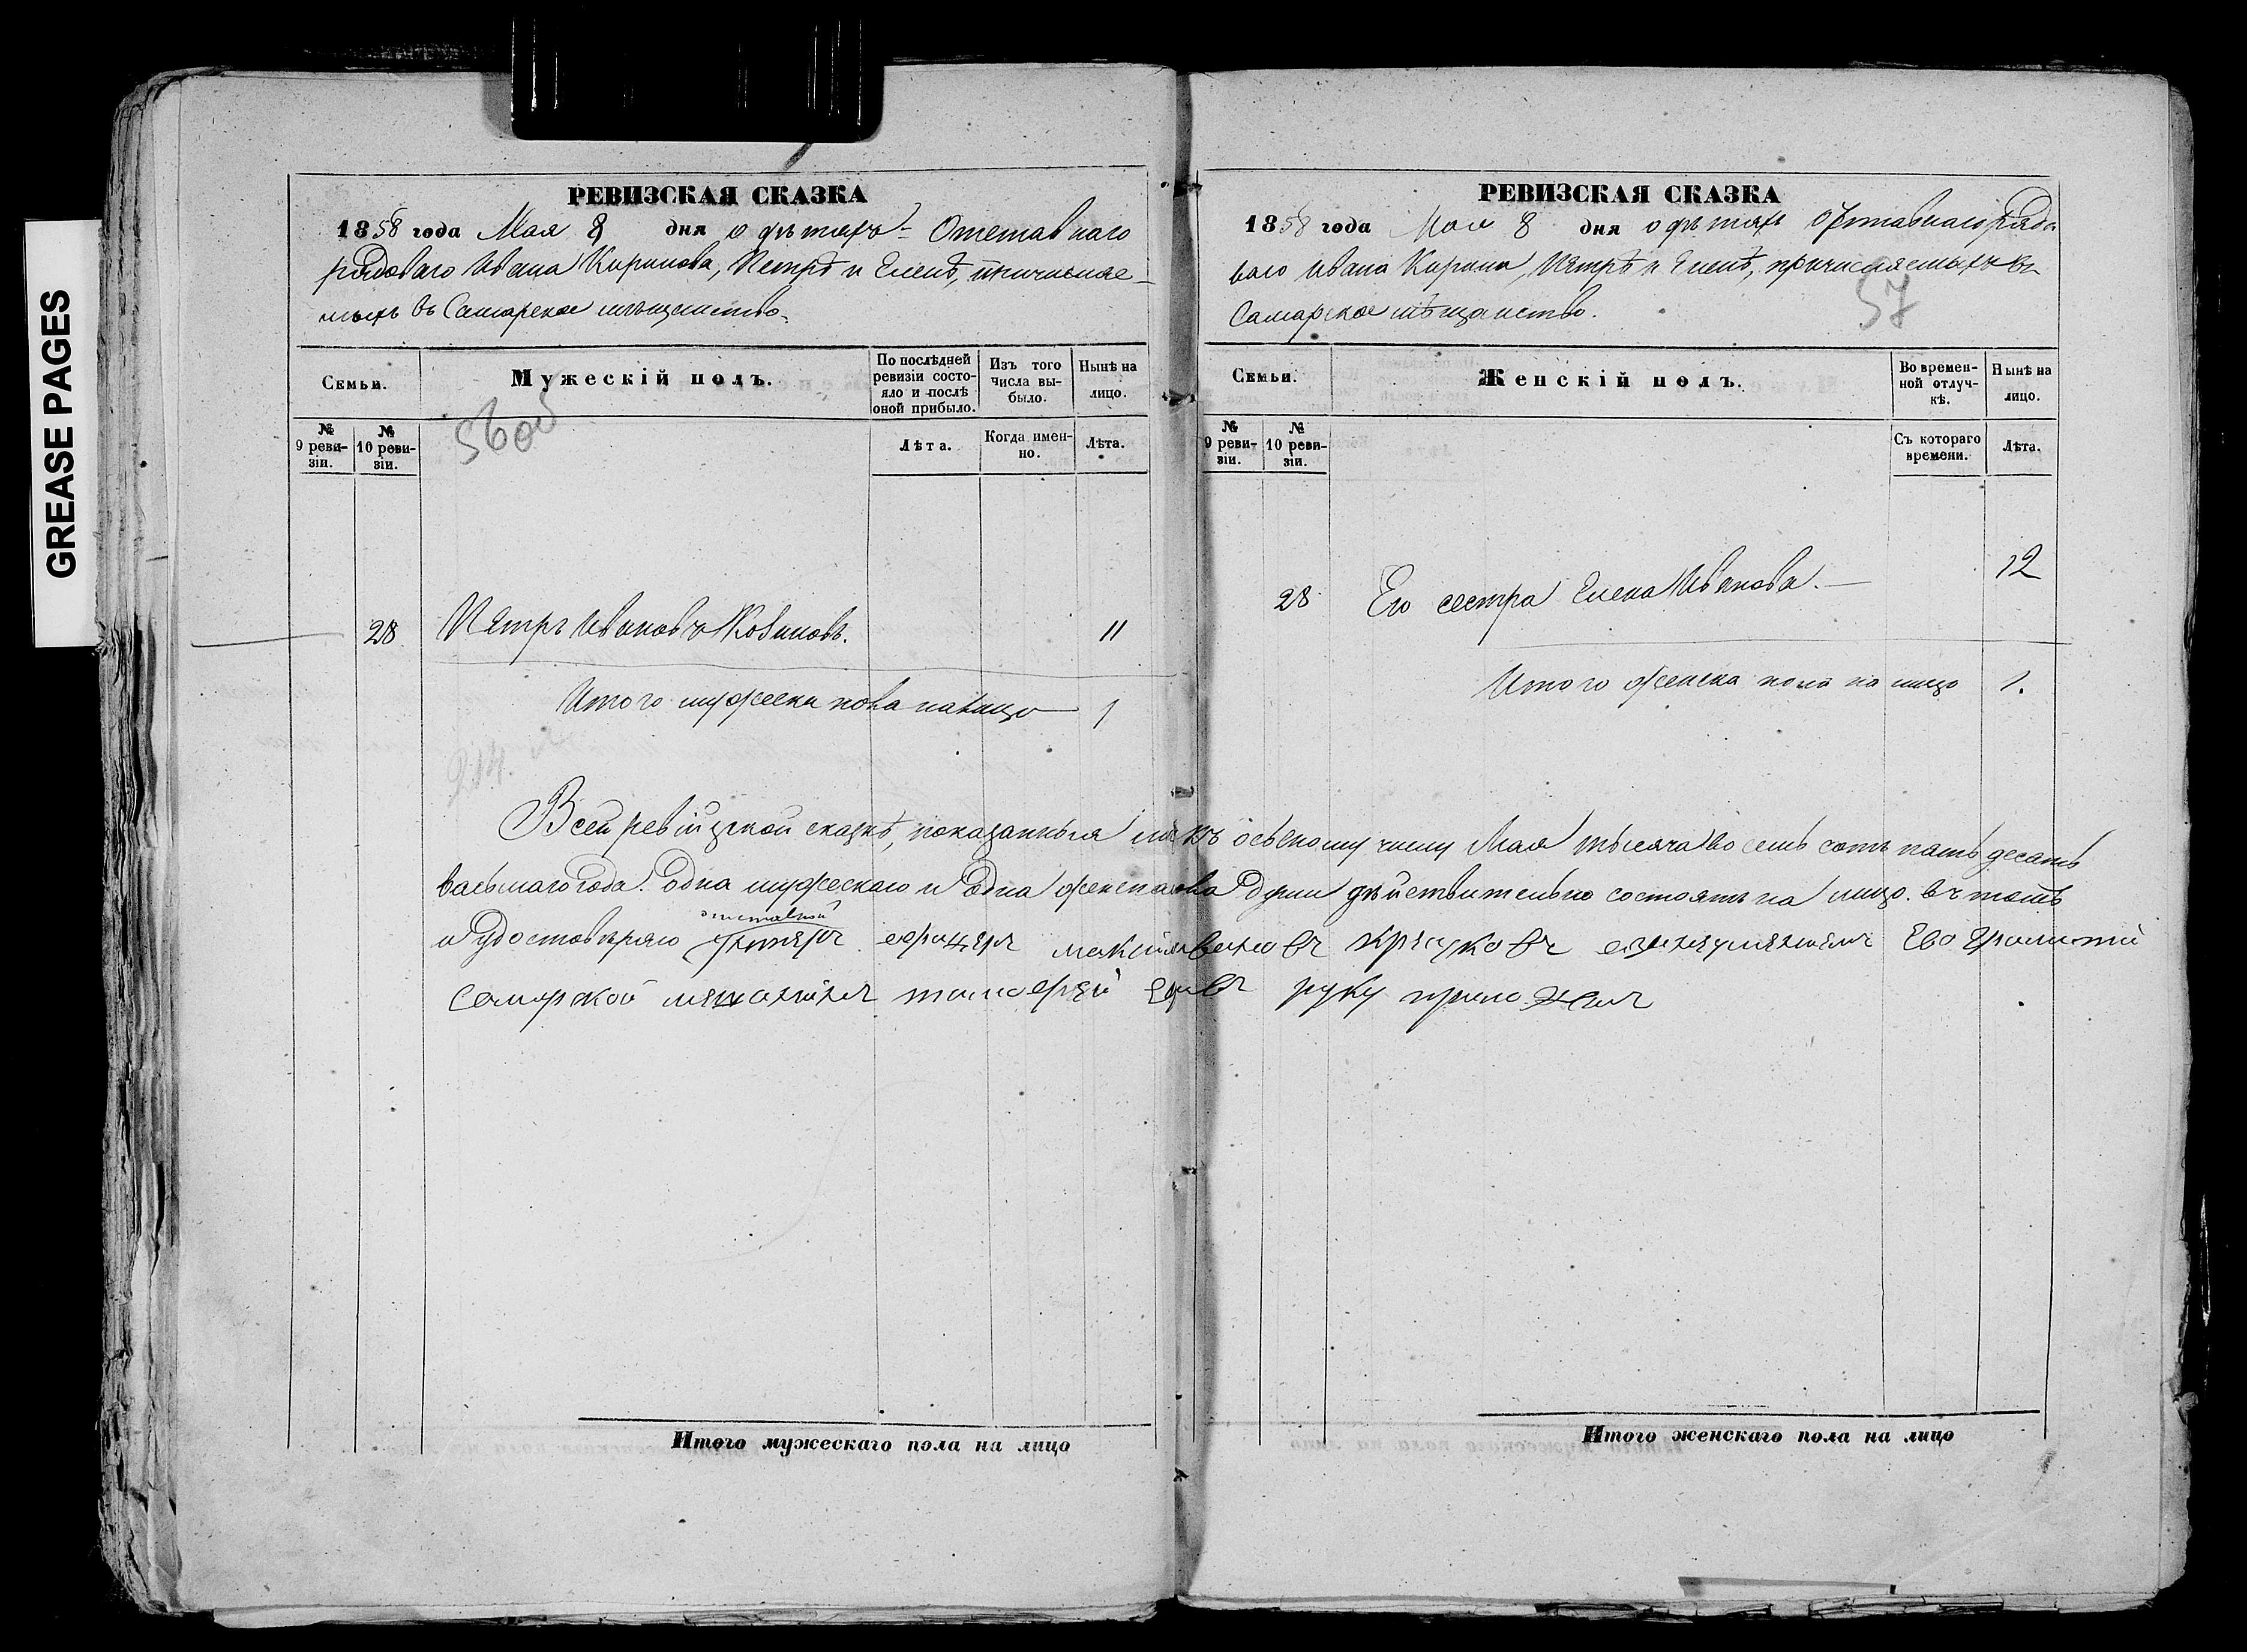 GREASE PAGES
РЕВИЗСКАЯ СКАЗКА
1858 года Мая 8 дня о дѣтяхъ Отставнаго
рядоваго Ивана Кирилова, Петрѣ и Еленѣ, причисляе-
мыхъ въ Самарское мѣщанство.
Семьи.
Мужескій полъ.
По послѣдней ревизіи состо-яло и послѣ оной прибыло.
Изъ того числа вы-было.
Нынѣ на лицо.
№ 9 реви-зіи.
№ 10 реви-зіи.
56об
Лѣта.
Когда имен-но.
Лѣта.
28 Петръ Ивановъ 11
Итого мужеска пола налицо 1
РЕВИЗСКАЯ СКАЗКА
1858 года Мая 8 дня о дѣтяхъ Отставнаго рядо
ваго Ивана Петрѣ и Еленѣ, причисляемыхъ въ
Самарское мѣщанство.
57
Семьи.
Женскій полъ.
Во времен-ной отлуч-кѣ.
Нынѣ на лицо.
№ 9 реви-зіи.
№ 10 реви-зіи.
Съ котораго времени.
Лѣта.
28 Его сестра Елена Иванова. 12
Итого женска пола на лицо 1.
Всей ревизской сказкѣ, показанныя осьмому числу Мая тысяча восемь сотъ пять десятъ
васьмаго года. Одна мужескаго и одна души дѣйствительно состоятъ на лицо. въ томъ
и удостовѣряю отставной Ево
Самарской руку приложилъ
Итого мужескаго пола на лицо
Итого женскаго пола на лицо